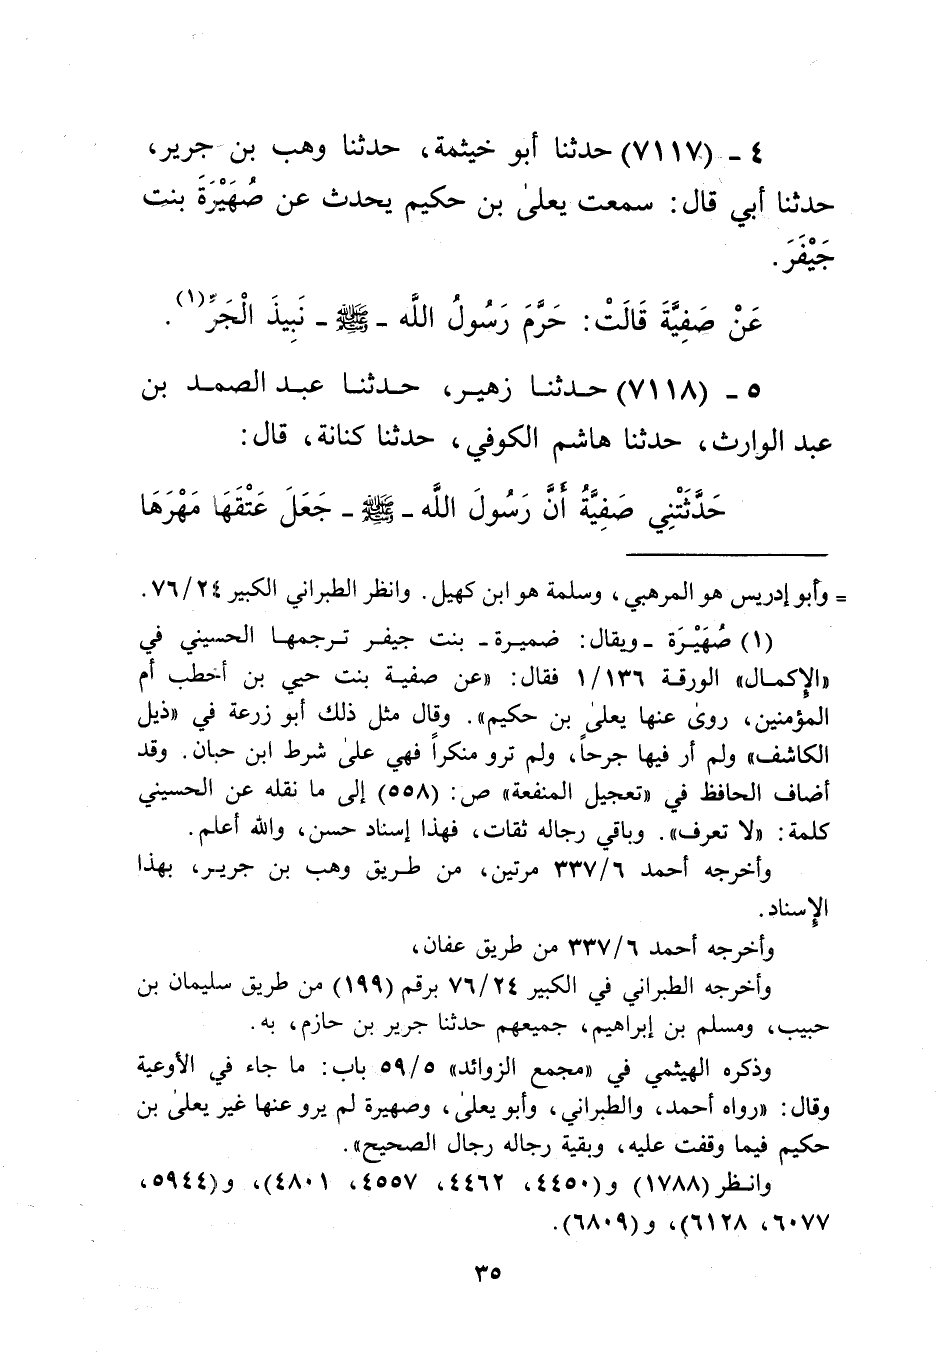 ٤ ـ (٧١١٧) حدثنا أبو خيثمة، حدثنا وهب بن جرير،
حدثنا أبي قال: سمعت يعلىٰ بن حكيم يحدث عن صُهَيْرَةَ بنت
جَيْفَرَ.
عَنْ صَفِيَّةَ قَالَتْ: حَرَّمَ رَسُولُ اللَّه ـ ﷺ ـ نَبِيذَ الْجَرِّ(١).
٥ ـ (٧١١٨) حدثنا زهير، حدثنا عبد الصمد بن
عبد الوارث، حدثنا هاشم الكوفي، حدثنا كنانة، قال:
حَدَّثَتْنِي صَفِيَّةُ أَنَّ رَسُولَ اللَّه ـ ﷺ ـ جَعَلَ عَتْقَهَا مَهْرَهَا
= وأبو إدريس هو المرهبي، وسلمة هو ابن كهيل. وانظر الطبراني الكبير ٧٦/٢٤.
(١) صُهَيْرَة ـ ويقال: ضميرة ـ بنت جيفر ترجمها الحسيني في
«الإكمال» الورقة ١/١٣٦ فقال: «عن صفية بنت حيي بن أخطب أم
المؤمنين، روىٰ عنها يعلىٰ بن حكيم». وقال مثل ذلك أبو زرعة في «ذيل
الكاشف» ولم أر فيها جرحاً، ولم ترو منكراً فهي علىٰ شرط ابن حبان. وقد
أضاف الحافظ في «تعجيل المنفعة» ص: (٥٥٨) إلى ما نقله عن الحسيني
كلمة: «لا تعرف». وباقي رجاله ثقات، فهذا إسناد حسن، والله أعلم.
وأخرجه أحمد ٣٣٧/٦ مرتين، من طريق وهب بن جرير، بهذا
الإسناد.
وأخرجه أحمد ٣٣٧/٦ من طريق عفان،
وأخرجه الطبراني في الكبير ٧٦/٢٤ برقم (١٩٩) من طريق سليمان بن
حبيب، ومسلم بن إبراهيم، جميعهم حدثنا جرير بن حازم، به.
وذكره الهيثمي في «مجمع الزوائد» ٥٩/٥ باب: ما جاء في الأوعية
وقال: «رواه أحمد، والطبراني، وأبو يعلىٰ، وصهيرة لم يرو عنها غير يعلىٰ بن
حكيم فيما وقفت عليه، وبقية رجاله رجال الصحيح».
وانظر (١٧٨٨) و (٤٤٥٠، ٤٤٦٢، ٤٥٥٧، ٤٨٠١)، و (٥٩٤٤،
٦٠٧٧، ٦١٢٨)، و (٦٨٠٩).
٣٥